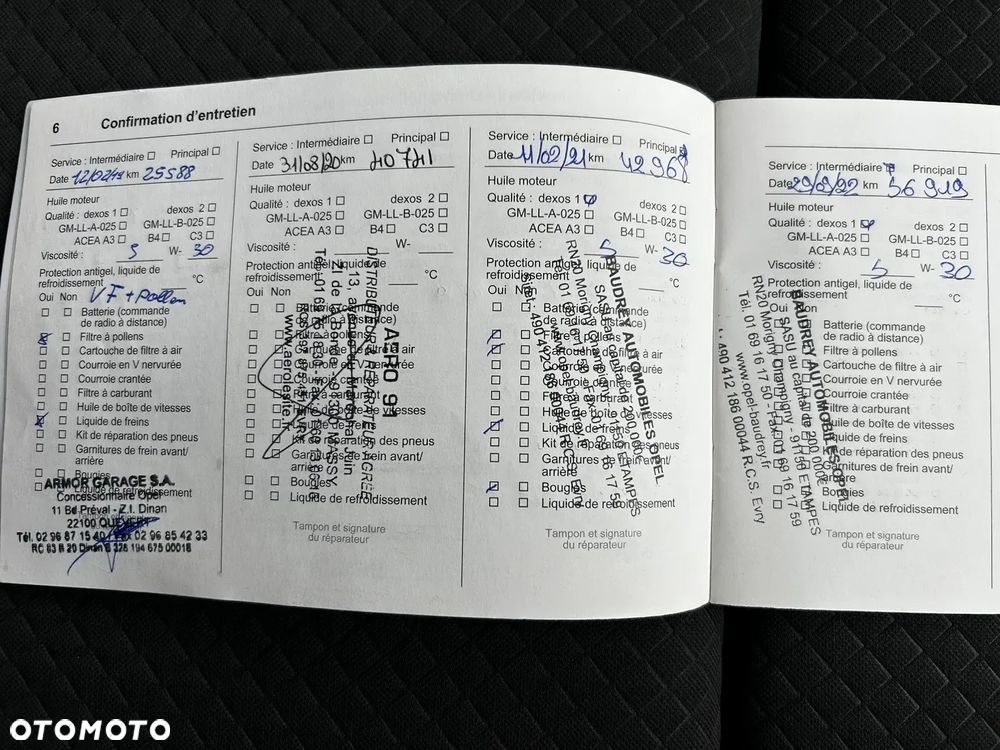 6 Confirmation d'entretien
Service : Intermédiaire Principal
Date 12/02/19 km 25588
Huile moteur
Qualité : dexos 1 dexos 2
GM-LL-A-025 GM-LL-B-025
ACEA A3 B4 C3
Viscosité : 5 W- 30
Protection antigel, liquide de
refroidissement °C
Oui Non VF + pollen
Batterie (commande
de radio à distance)
Filtre à pollens
Cartouche de filtre à air
Courroie en V nervurée
Courroie crantée
Filtre à carburant
Huile de boîte de vitesses
Liquide de freins
Kit de réparation des pneus
Garnitures de frein avant/
arrière
Bougies
Liquide de refroidissement
ARMOR GARAGE S.A.
Concessionnaire Opel
11 Bd Préval - Z.I. Dinan
22100 QUEVERT
Tél. 02 96 87 15 40 / Fax 02 96 85 42 33
RC 83 B 20 Dinan B 326 194 675 00018
Service : Intermédiaire Principal
Date 31/08/20 km
Huile moteur
Qualité : dexos 1 dexos 2
GM-LL-A-025 GM-LL-B-025
ACEA A3 B4 C3
Viscosité : W-
Protection antigel, liquide de
refroidissement °C
Oui Non
Batterie (commande
de radio à distance)
Filtre à pollens
Cartouche de filtre à air
Courroie en V nervurée
Courroie crantée
Filtre à carburant
Huile de boîte de vitesses
Liquide de freins
Kit de réparation des pneus
Garnitures de frein avant/
arrière
Bougies
Liquide de refroidissement
Tampon et signature
du réparateur
AERO 91
DISTRIBUTEUR REPARATEUR AGREE
MASSY
Service : Intermédiaire Principal
Date 11/02/21 km 42968
Huile moteur
Qualité : dexos 1 dexos 2
GM-LL-A-025 GM-LL-B-025
ACEA A3 B4 C3
Viscosité : 5 W- 30
Protection antigel, liquide de
refroidissement °C
Oui Non
Batterie (commande
de radio à distance)
Filtre à pollens
Cartouche de filtre à air
Courroie en V nervurée
Courroie crantée
Filtre à carburant
Huile de boîte de vitesses
Liquide de freins
Kit de réparation des pneus
Garnitures de frein avant/
arrière
Bougies
Liquide de refroidissement
Tampon et signature
du réparateur
BAUDREY AUTOMOBILES OPEL
SASU au capital de 200.000€
RN20 Morigny Champigny - 91150 ETAMPES
Service : Intermédiaire Principal
Date 29/09/22 km 56919
Huile moteur
Qualité : dexos 1 dexos 2
GM-LL-A-025 GM-LL-B-025
ACEA A3 B4 C3
Viscosité : 5 W- 30
Protection antigel, liquide de
refroidissement °C
Oui Non
Batterie (commande
de radio à distance)
Filtre à pollens
Cartouche de filtre à air
Courroie en V nervurée
Courroie crantée
Filtre à carburant
Huile de boîte de vitesses
Liquide de freins
Kit de réparation des pneus
Garnitures de frein avant/
arrière
Bougies
Liquide de refroidissement
Tampon et signature
du réparateur
BAUDREY AUTOMOBILES OPEL
SASU au capital de 200.000€
RN20 Morigny Champigny - 91150 ETAMPES
Tél. 01 69 16 17 50 - Fax 01 69 16 17 59
www.opel-baudrey.fr
490 412 186 00044 R.C.S. Evry
OTOMOTO